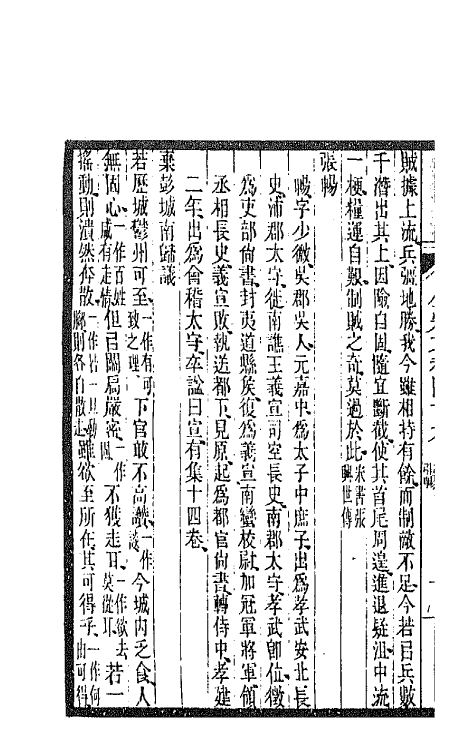 賊據上流兵彊地勝我今雖相持有餘而制敵不足今若以兵數
千潛出其上因險自固隨宜斷截使其首尾周遑進退疑沮中流
一梗糧運自艱制賊之奇莫過於此宋書張興世傳
張暢
暢字少微吳郡吳人元嘉中為太子中庶子出為孝武安北長
史沛郡太守徙南譙王義宣司空長史南郡太守孝武即位徵
為吏部尚書封夷道縣矦復為義宣南蠻校尉加冠軍將軍領
丞相長史義宣敗執送都下見原起為都官尚書轉侍中孝建
二年出為會稽太守卒謚曰宣有集十四卷
棄彭城南歸議
若歷城鬱州可至一作有可致之理下官敢不高讚一作談今城內乏食人
無固心一作百姓咸有走情但以關扃嚴密一作固不獲走耳一作欲去莫從耳若一
搖動則潰然奔散一作若一旦動腳則各自散走雖欲至所在其可得乎一作何由可得